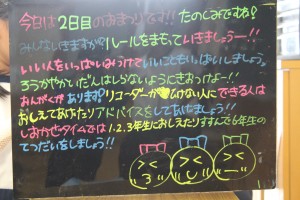 今日は2日目のおまつりです!! たのしみですね!
みんないきますか? ルールをまもっていきましょう―!!
いい人をいっぱいみつけていいこともいっぱいしましょう。
ろうかやかいだんはしらないようにきおつけよー!!
おんがくがあります? リコーダーが ない人に できる人は
おしえてあげたりアドバイスをしてあげましょう!!
しおかぜタイムでは 1.2.3年生におしえたりすすんで6年生の
てつだいをしましょう!!